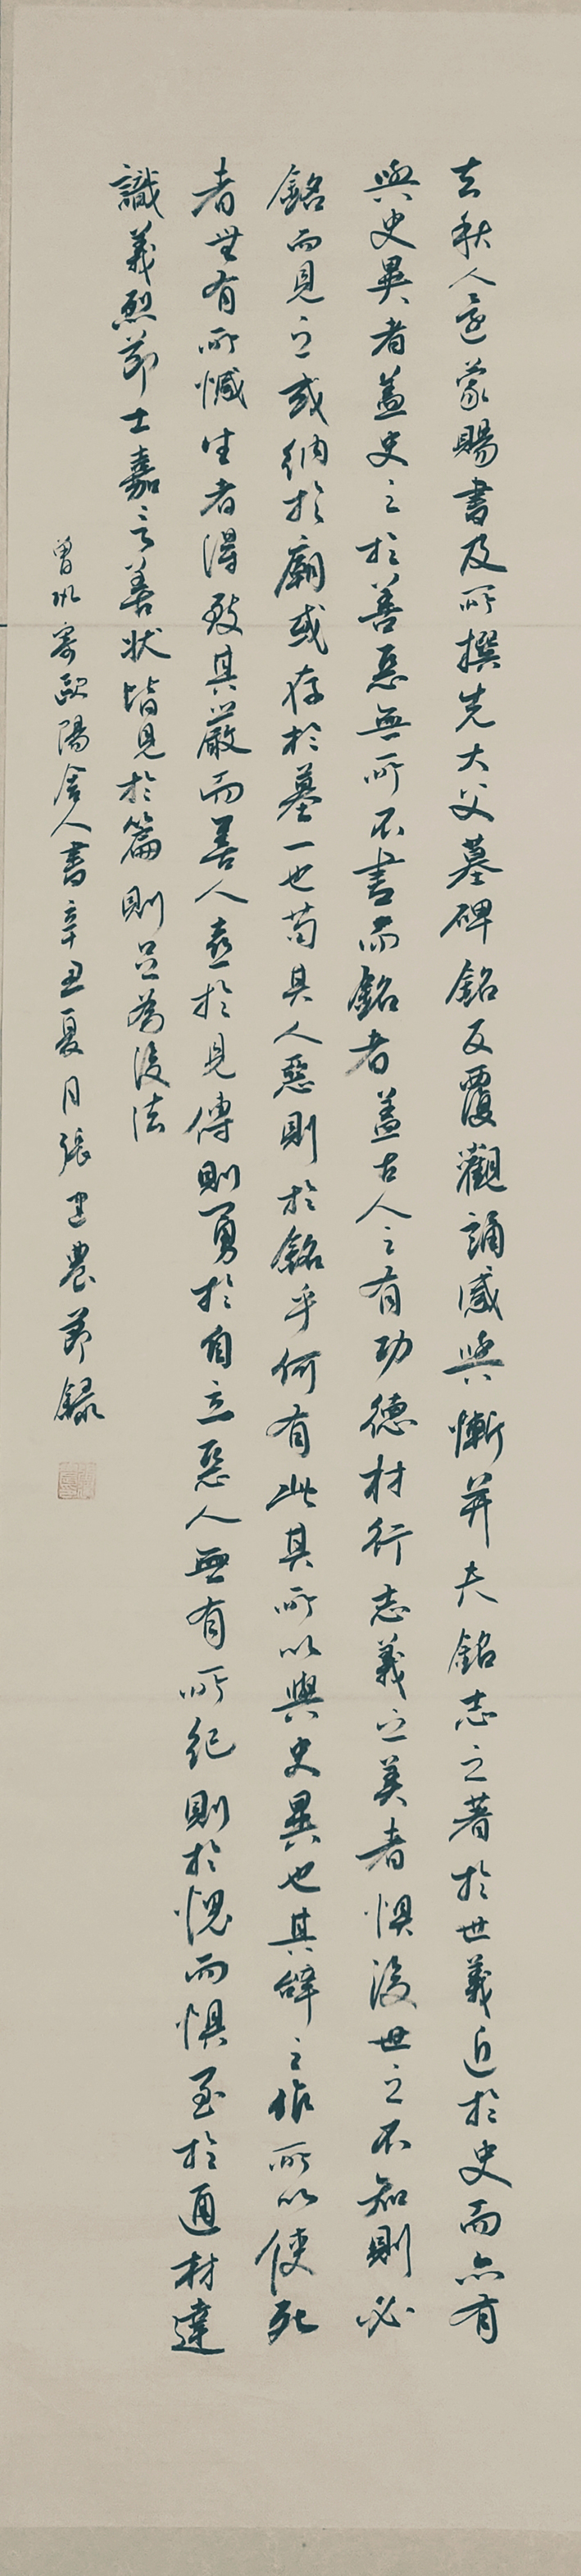 去秋人還蒙賜書及所撰先大父墓碑銘反覆觀誦感與慚并夫銘志之著於世義近於史而亦有
與史異者蓋史之於善惡無所不書而銘者蓋古人之有功德材行志義之美者懼後世之不知則必
銘而見之或納於廟或存於墓一也苟其人惡則於銘乎何有此其所以與史異也其辭之作所以使死
者無有所憾生者得致其嚴而善人喜於見傳則勇於自立惡人無有所紀則於愧而懼至於通材達
識義烈節士嘉言善狀皆見於篇則足為後法
曾鞏寄歐陽舍人書辛丑夏月張建農節錄